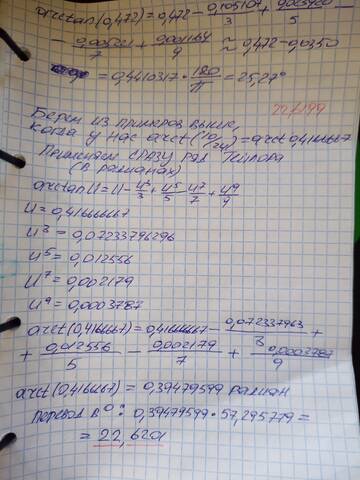 arctan(0,472)=0,472-0,105107/3+0,023420/5-
0,005221/7+0,001164/9≈0,472-0,0350
=0,4410317·180/π=25,27°
22/1199
Берем из примеров выше,
когда у нас arct(10/24)=arct 0,416667
Применяем сразу ряд Тейлора
(в радианах)
arctan U=U-U³/3+U⁵/5-U⁷/7+U⁹/9
U=0,41666667
U³=0,07233796296
U⁵=0,012556
U⁷=0,002179
U⁹=0,0003787
arct(0,416667)=0,41666667-0,072337963/3+
+0,012556/5-0,002179/7+0,0003787/9
arct(0,416667)=0,39479599 радиан
перевод в °: 0,39479599·57,295779=
=22,6201